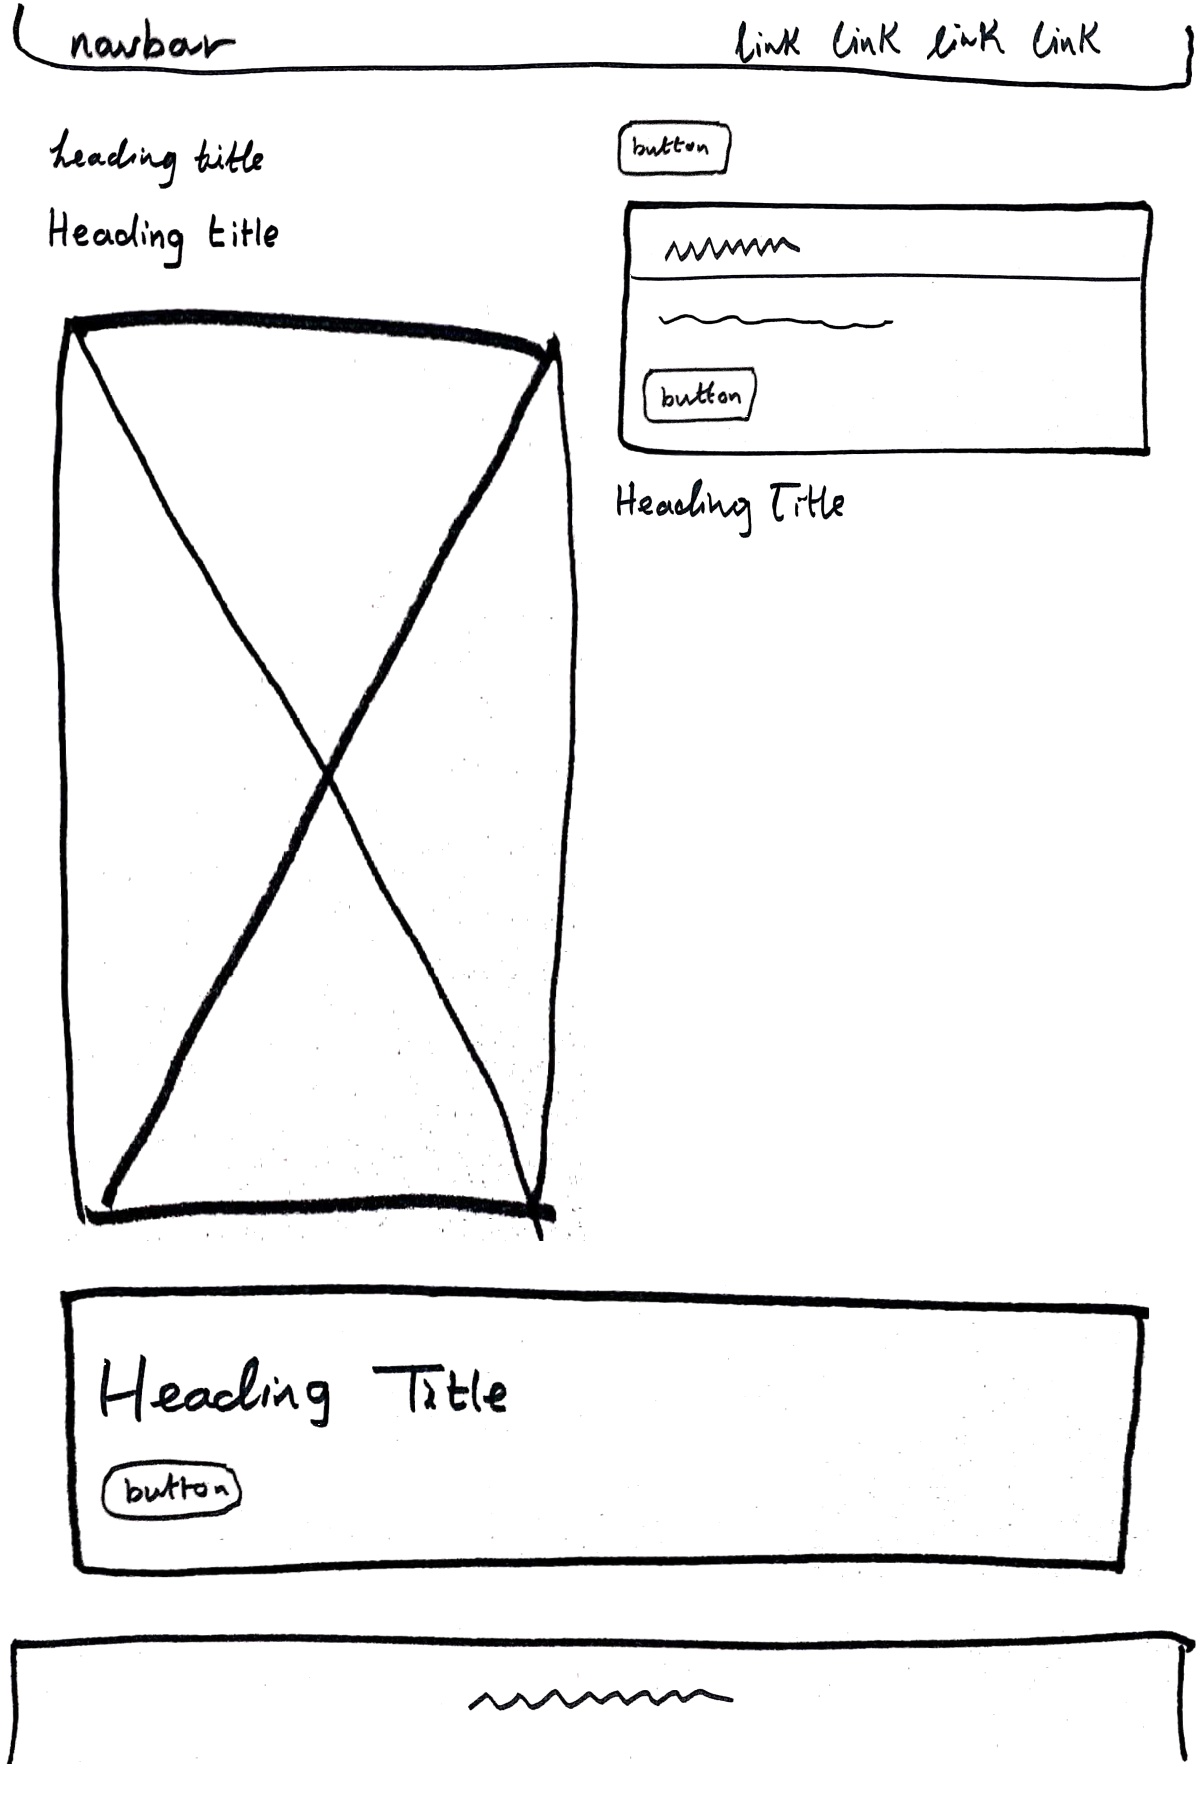 navbar link link link link
heading title
Heading title
button
button
Heading Title
Heading Title
button